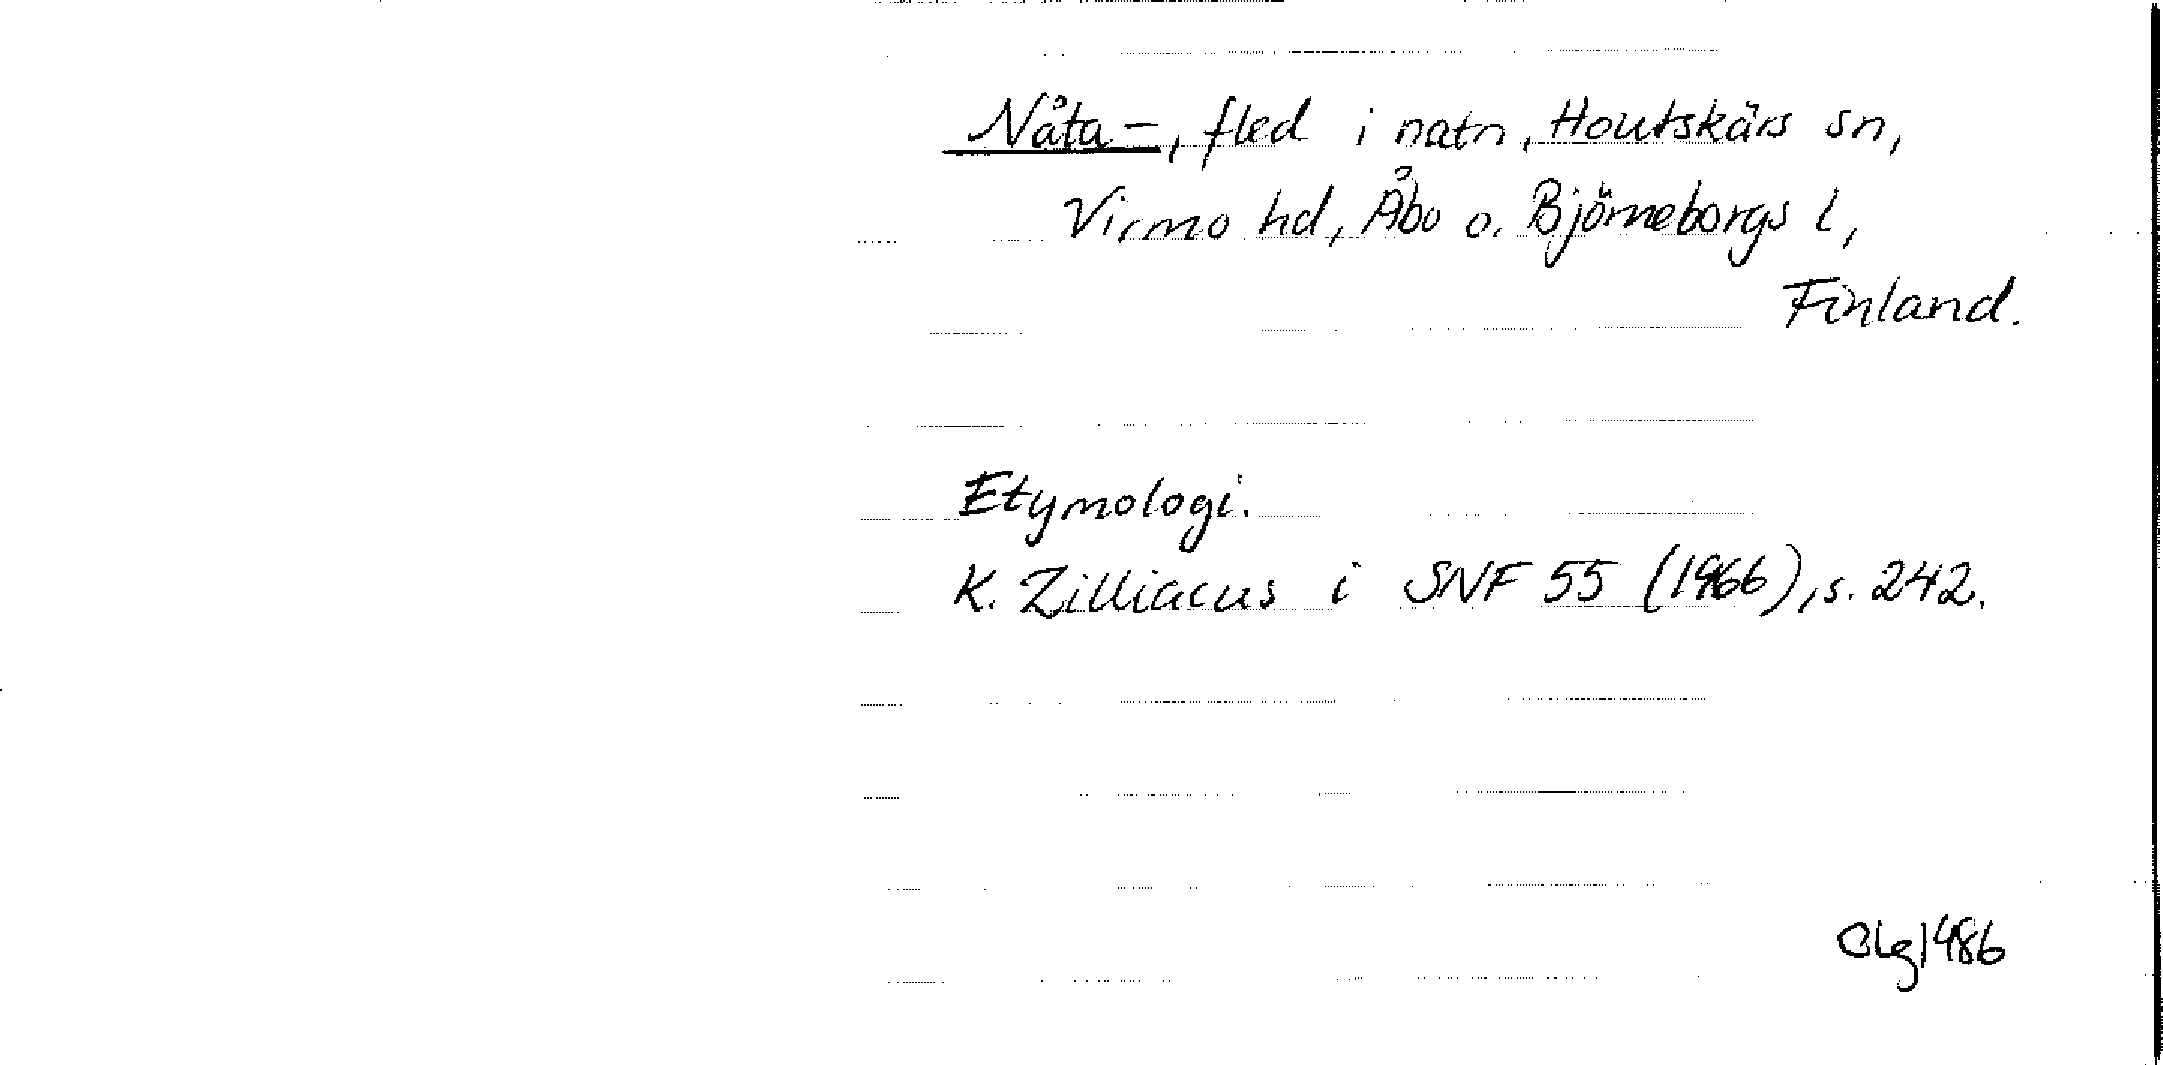 Nåta-, fled i natn, Houtskärs sn,
Virmo hd, Åbo o. Björneborgs l,
Finland.
Etymologi.
K. Zilliacus i SNF 55 (1966), s. 242.